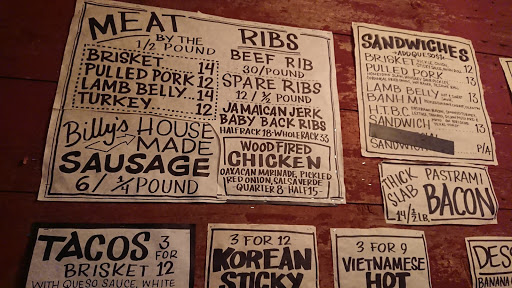 MEAT
BY THE
1/2 POUND
BRISKET 14
PULLED PORK 12
LAMB BELLY 14
TURKEY 12
Billy's HOUSE
MADE
SAUSAGE
6/ 1/4 POUND
RIBS
BEEF RIB
30/POUND
SPARE RIBS
12/ 1/2 POUND
JAMAICAN JERK
BABY BACK RIBS
HALF RACK 18 - WHOLE RACK 33
WOOD FIRED
CHICKEN
OAXACAN MARINADE, PICKLED
RED ONION, SALSA VERDE
QUARTER 8 HALF 15
SANDWICHES
BRISKET 12
PULLED PORK
LAMB BELLY 13
BANH MI 13
T.L.B.C. 13
SANDWICH
SANDWICH P/A
THICK PASTRAMI
SLAB BACON
14/ 1/2 LB.
TACOS 3
FOR
BRISKET 12
WITH QUESO SAUCE, WHITE
3 FOR 12
KOREAN
STICKY
3 FOR 9
VIETNAMESE
HOT
BANANA